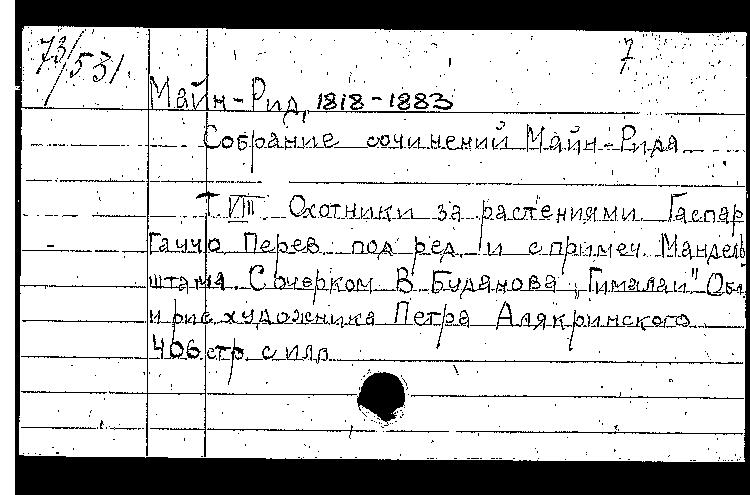 73/531.
7
Майн-Рид, 1818-1883
Собрание сочинений Майн-Рида
Т. VIII. Охотники за растениями. Гаспар
Гаучо. Перев. под ред. и с примеч. Мандель
штама. С очерком В. Буданова „Гималаи" Обл.
и рис. художника Петра Алякринского.
406 стр. с илл.